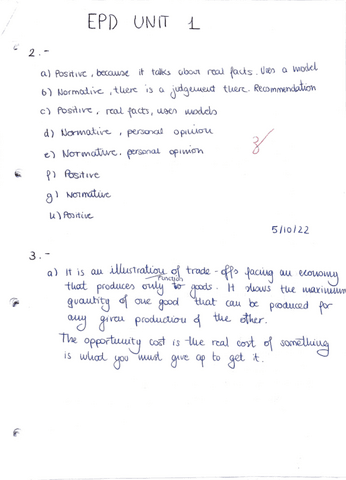 EPD UNIT 1
2.-
a) Positive, because it talks about real facts. Uses a model
b) Normative, there is a judgement there. Recommendation
c) Positive, real facts, uses models
d) Normative, personal opinion
e) Normative, personal opinion
f) Positive
g) Normative
h) Positive
5/10/22
3.-
a) It is an illustration of trade-offs facing an economy
function
that produces only to goods. It shows the maximum
quantity of one good that can be produced for
any given production of the other.
The opportunity cost is the real cost of something
is what you must give up to get it.